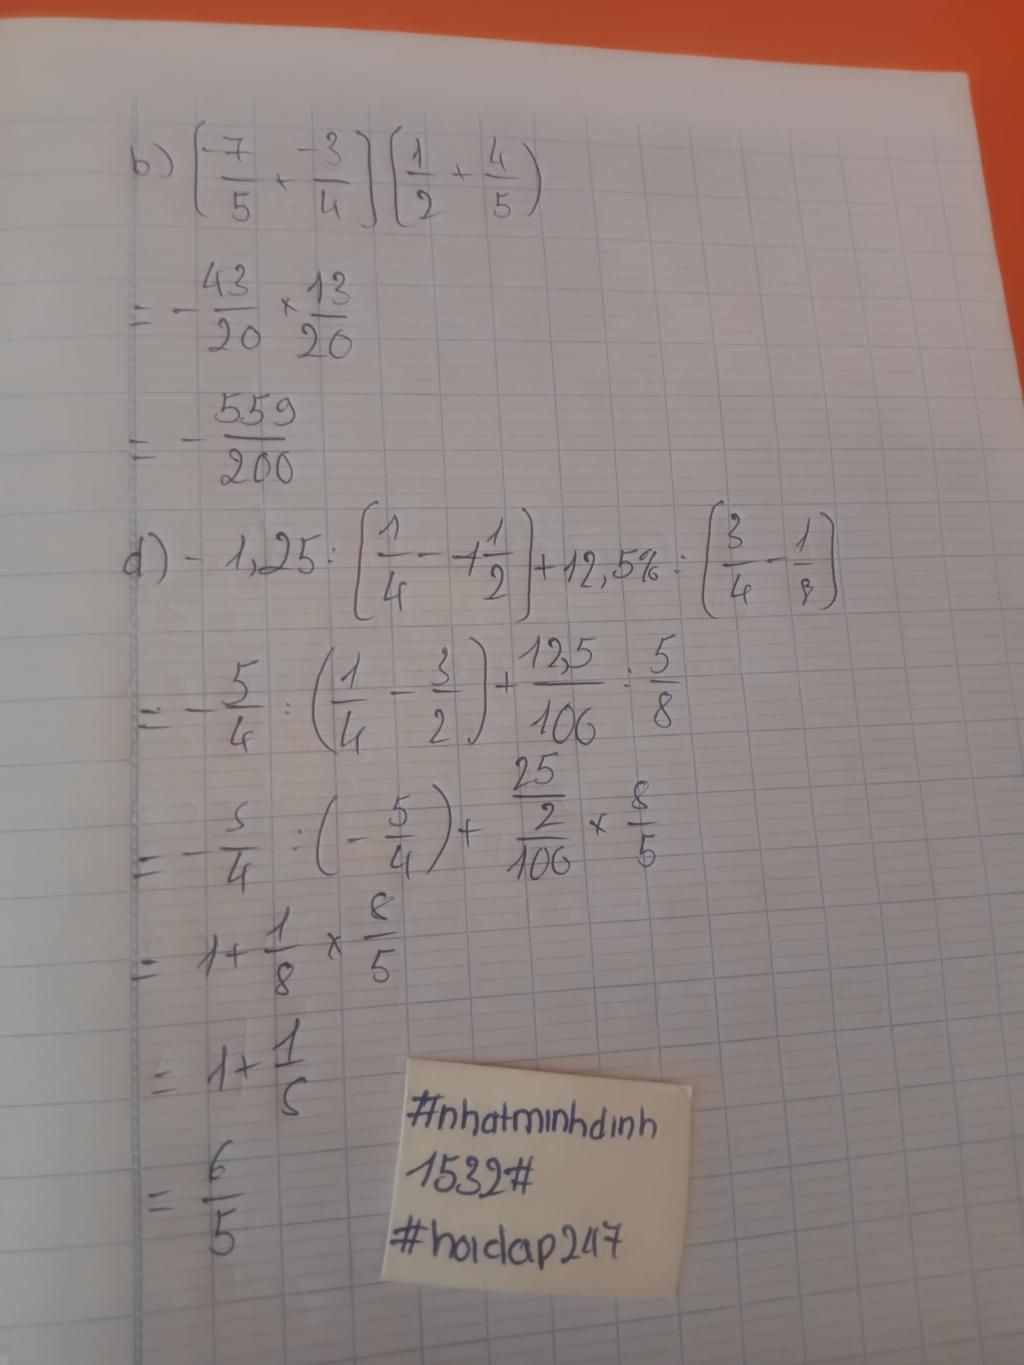 b) [-7/5 + -3/4] (1/2 + 4/5)
= - 43/20 × 13/20
= - 559/200
d) - 1,25 : [1/4 - 1 1/2] + 12,5% : [3/4 - 1/8]
= - 5/4 : (1/4 - 3/2) + 12,5/100 : 5/8
= - 5/4 : (- 5/4) + 25/2/100 × 8/5
= 1 + 1/8 × 8/5
= 1 + 1/5
= 6/5
#nhatminhdinh
1532#
#hoidap247